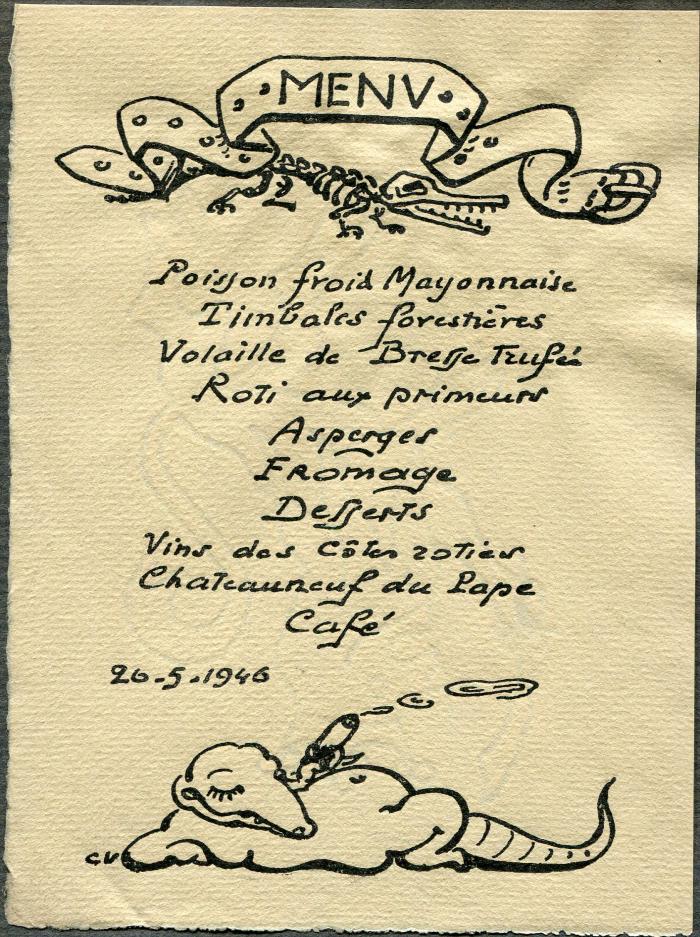 MENV
Poisson froid Mayonnaise
Timbales forestières
Volaille de Bresse Trufée
Roti aux primeurs
Asperges
Fromage
Desserts
Vins des Côtes roties
Chateauneuf du Pape
Café
26.5.1946
CV